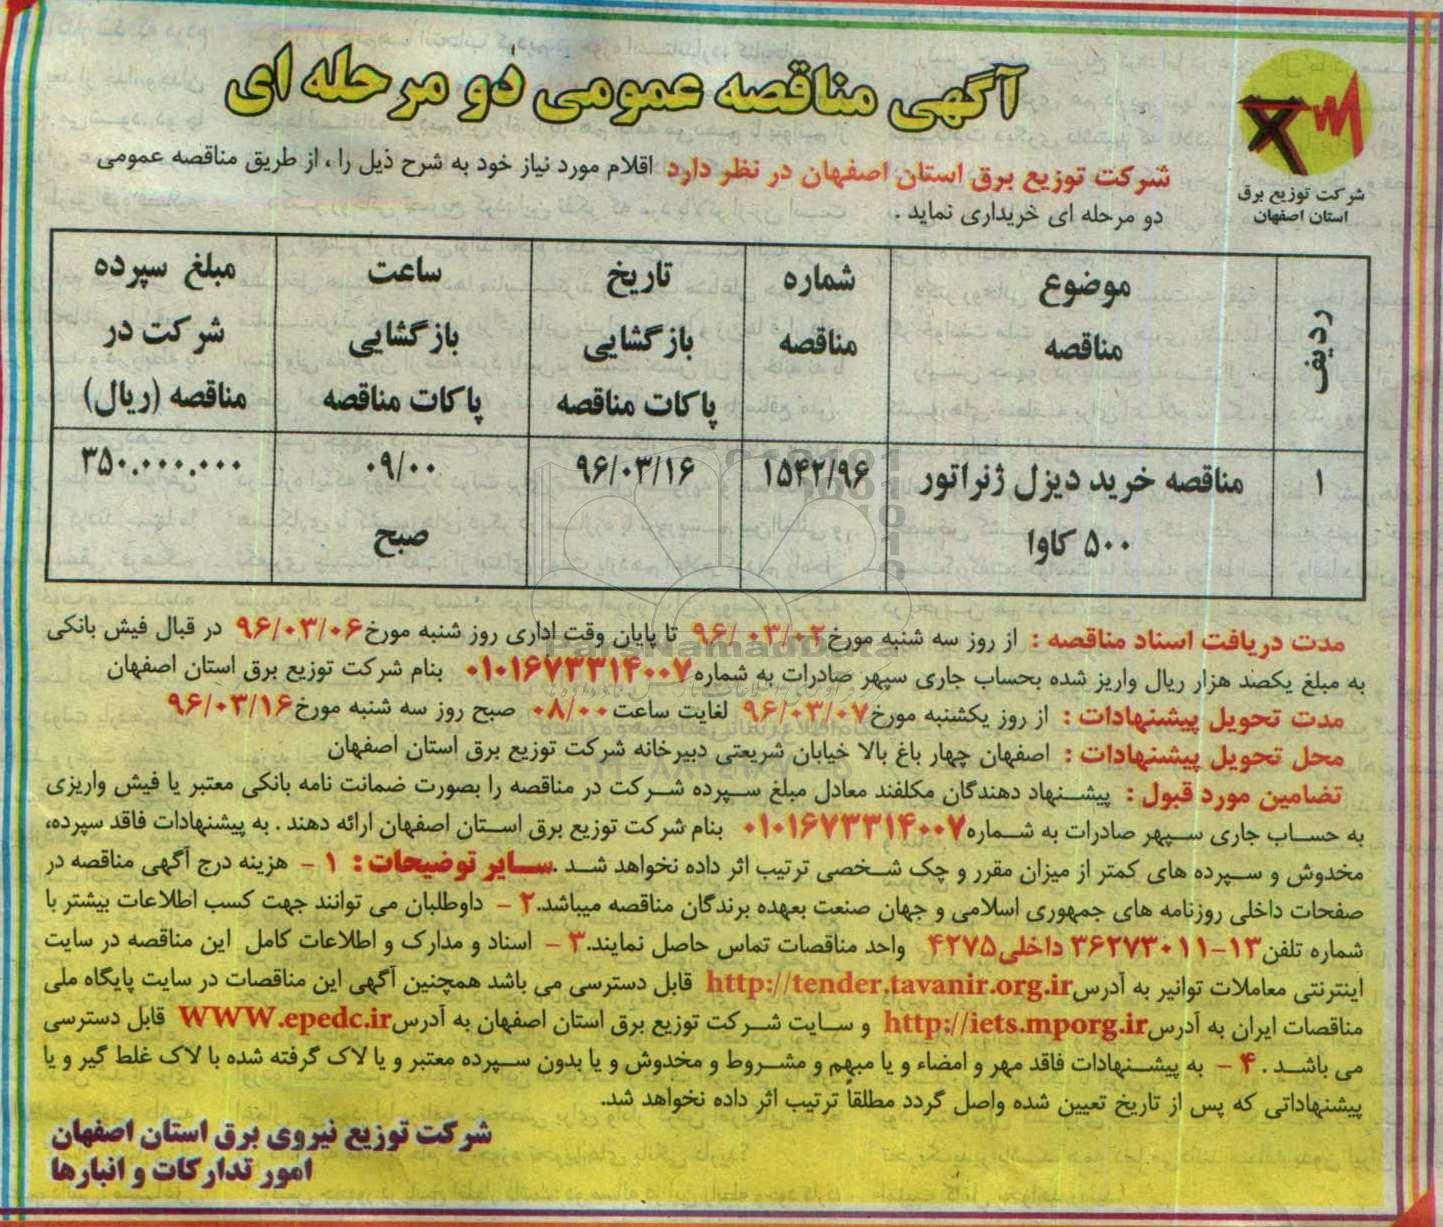 آگهی مناقصه عمومی دو مرحله ای
شرکت توزیع برق
استان اصفهان
شرکت توزیع برق استان اصفهان در نظر دارد اقلام مورد نیاز خود به شرح ذیل را ، از طریق مناقصه عمومی
دو مرحله ای خریداری نماید .
ردیف
موضوع
مناقصه
شماره
مناقصه
تاریخ
بازگشایی
پاکات مناقصه
ساعت
بازگشایی
پاکات مناقصه
مبلغ سپرده
شرکت در
مناقصه (ریال)
۱
مناقصه خرید دیزل ژنراتور
۵۰۰ کاوا
۱۵۴۲/۹۶
۹۶/۰۳/۱۶
۰۹/۰۰
صبح
۳۵۰.۰۰۰.۰۰۰
مدت دریافت اسناد مناقصه : از روز سه شنبه مورخ ۹۶/۰۳/۰۲ تا پایان وقت اداری روز شنبه مورخ ۹۶/۰۳/۰۶ در قبال فیش بانکی
به مبلغ یکصد هزار ریال واریز شده بحساب جاری سپهر صادرات به شماره ۰۱۰۱۶۷۳۳۱۴۰۰۷ بنام شرکت توزیع برق استان اصفهان
مدت تحویل پیشنهادات : از روز یکشنبه مورخ ۹۶/۰۳/۰۷ لغایت ساعت ۰۸/۰۰ صبح روز سه شنبه مورخ ۹۶/۰۳/۱۶
محل تحویل پیشنهادات : اصفهان چهار باغ بالا خیابان شریعتی دبیرخانه شرکت توزیع برق استان اصفهان
تضامین مورد قبول : پیشنهاد دهندگان مکلفند معادل مبلغ سپرده شرکت در مناقصه را بصورت ضمانت نامه بانکی معتبر یا فیش واریزی
به حساب جاری سپهر صادرات به شماره ۰۱۰۱۶۷۳۳۱۴۰۰۷ بنام شرکت توزیع برق استان اصفهان ارائه دهند . به پیشنهادات فاقد سپرده،
مخدوش و سپرده های کمتر از میزان مقرر و چک شخصی ترتیب اثر داده نخواهد شد .سایر توضیحات : ۱ - هزینه درج آگهی مناقصه در
صفحات داخلی روزنامه های جمهوری اسلامی و جهان صنعت بعهده برندگان مناقصه میباشد.۲ - داوطلبان می توانند جهت کسب اطلاعات بیشتر با
شماره تلفن ۱۳-۳۶۲۷۳۰۱۱ داخلی ۴۲۷۵ واحد مناقصات تماس حاصل نمایند.۳ - اسناد و مدارک و اطلاعات کامل این مناقصه در سایت
اینترنتی معاملات توانیر به آدرس http://tender.tavanir.org.ir قابل دسترسی می باشد همچنین آگهی این مناقصات در سایت پایگاه ملی
مناقصات ایران به آدرس http://iets.mporg.ir و سایت شرکت توزیع برق استان اصفهان به آدرس WWW.epedc.ir قابل دسترسی
می باشد . ۴ - به پیشنهادات فاقد مهر و امضاء و یا مبهم و مشروط و مخدوش و یا بدون سپرده معتبر و یا لاک گرفته شده با لاک غلط گیر و یا
پیشنهاداتی که پس از تاریخ تعیین شده واصل گردد مطلقاً ترتیب اثر داده نخواهد شد.
شرکت توزیع نیروی برق استان اصفهان
امور تدارکات و انبارها